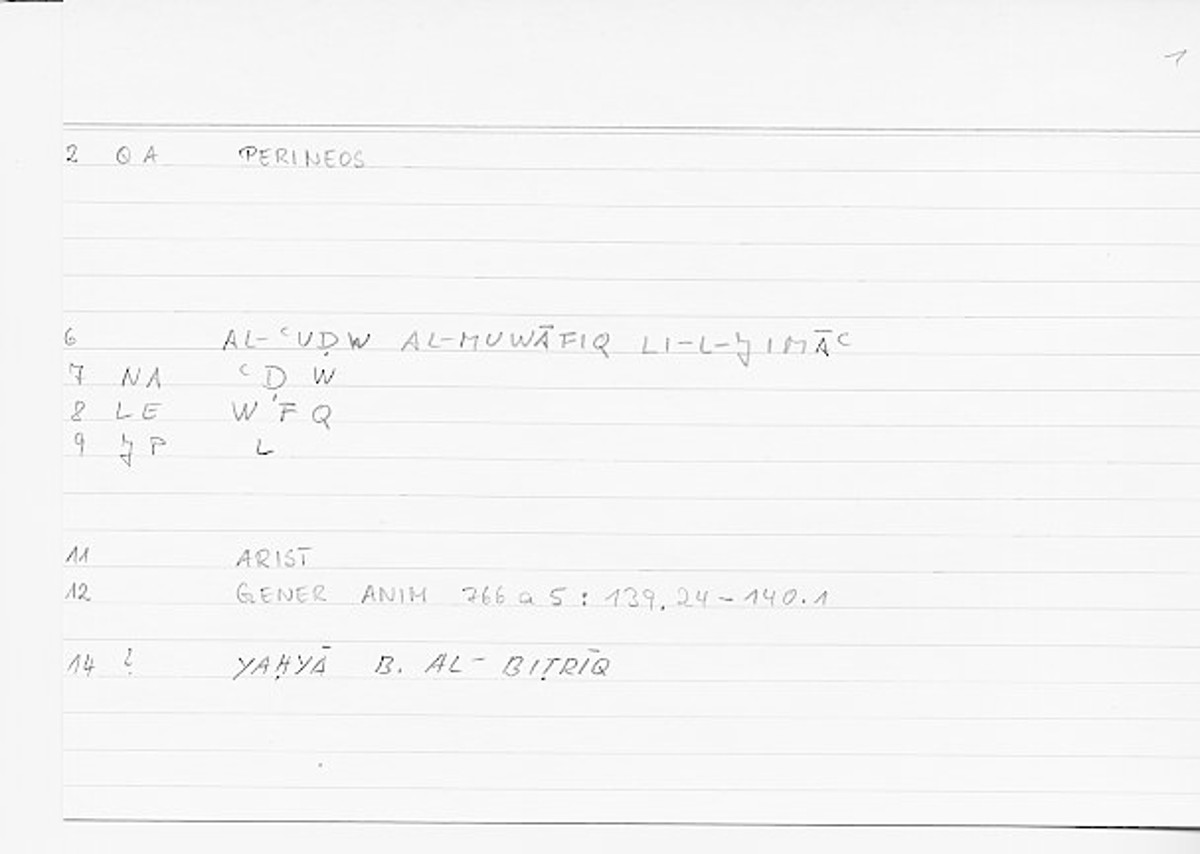 1
2 QA PERINEOS
6 AL-ʿUḌW AL-MUWĀFIQ LI-L-JIMĀʿ
7 NA ʿḌ W
8 LE W F Q
9 JP L
11 ARIST
12 GENER ANIM 766 a 5 : 139.24 - 140.1
14 ? YAḤYĀ B. AL-BIṬRĪQ